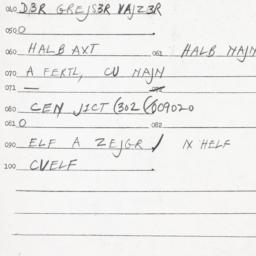 040 D3R GREJS3R VAJZ3R
050 0
060 HALB AXT 061 HALB NAJN
070 A FERTL, CU NAJN
071 —
080 CEN J1CT (302 (609020
081 0 082
090 ELF A ZEJGR / IX HELF
100 CVELF